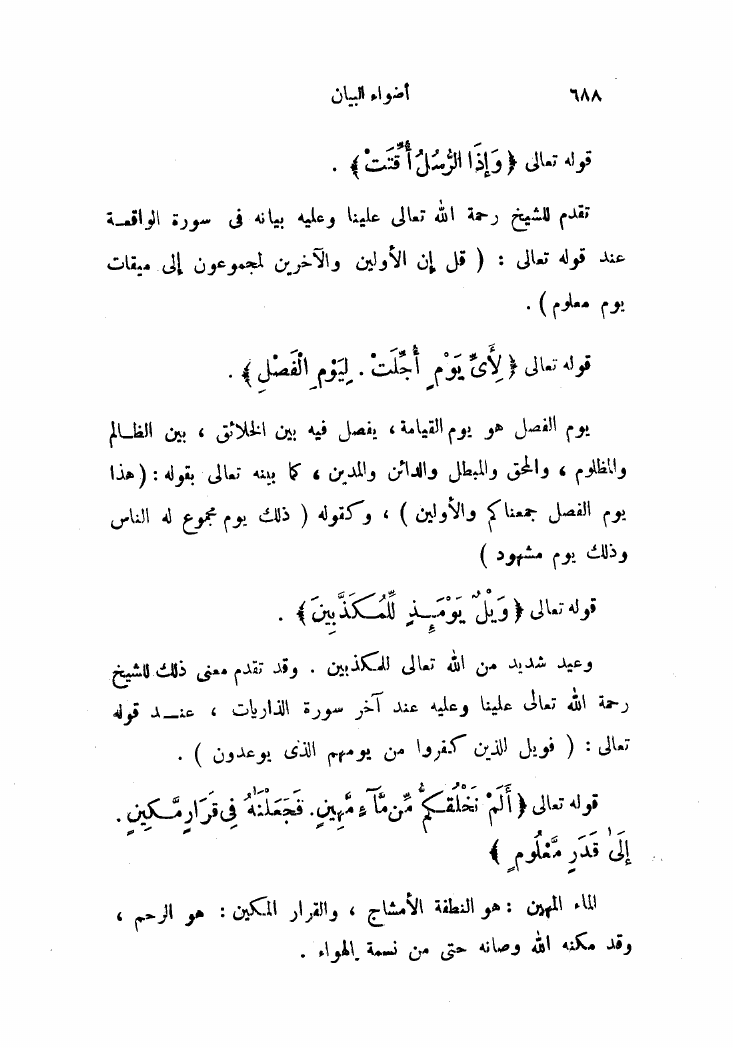 ٦٨٨ أضواء البيان
قوله تعالى ﴿ وَإِذَا الرُّسُلُ أُقِّتَتْ ﴾ .
تقدم للشيخ رحمة الله تعالى علينا وعليه بيانه فى سورة الواقعـة
عند قوله تعالى : ( قل إن الأولين والآخرين لمجموعون إلى ميقات
يوم معلوم ) .
قوله تعالى ﴿ لِأَىِّ يَوْمٍ أُجِّلَتْ . لِيَوْمِ الْفَصْلِ ﴾ .
يوم الفصل هو يوم القيامة ، يفصل فيه بين الخلائق ، بين الظـالم
والمظلوم ، والمحق والمبطل والدائن والمدين ، كما بينه تعالى بقوله : ( هذا
يوم الفصل جمعناكم والأولين ) ، وكقوله ( ذلك يوم مجموع له الناس
وذلك يوم مشهود )
قوله تعالى ﴿ وَيْلٌ يَوْمَئِذٍ لِّلْمُكَذِّبِينَ ﴾ .
وعيد شديد من الله تعالى للمكذبين . وقد تقدم معنى ذلك للشيخ
رحمة الله تعالى علينا وعليه عند آخر سورة الذاريات ، عنـد قوله
تعالى : ( فويل للذين كفروا من يومهم الذى يوعدون ) .
قوله تعالى ﴿ أَلَمْ نَخْلُقكُّم مِّن مَّآءٍ مَّهِينٍ . فَجَعَلْنَٰهُ فِى قَرَارٍ مَّكِينٍ .
إِلَىٰ قَدَرٍ مَّعْلُومٍ ﴾
الماء المهين : هو النطفة الأمشاج ، والقرار المكين : هو الرحم ،
وقد مكنه الله وصانه حتى من نسمة الهواء .